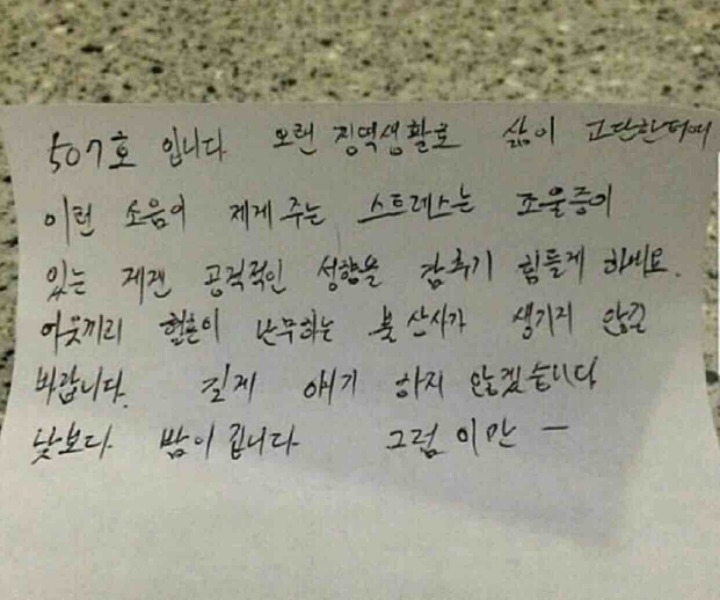 507호 입니다 오랜 징역생활로 삶이 고단한터에
이런 소음이 제게 주는 스트레스는 조울증이
있는 제겐 공격적인 성향을 감추기 힘들게 하네요.
이웃끼리 혈흔이 난무하는 불 산사가 생기지 않길
바랍니다. 길게 얘기 하지 않겠습니다
낮보다 밤이 깁니다 그럼 이만 ㅡ